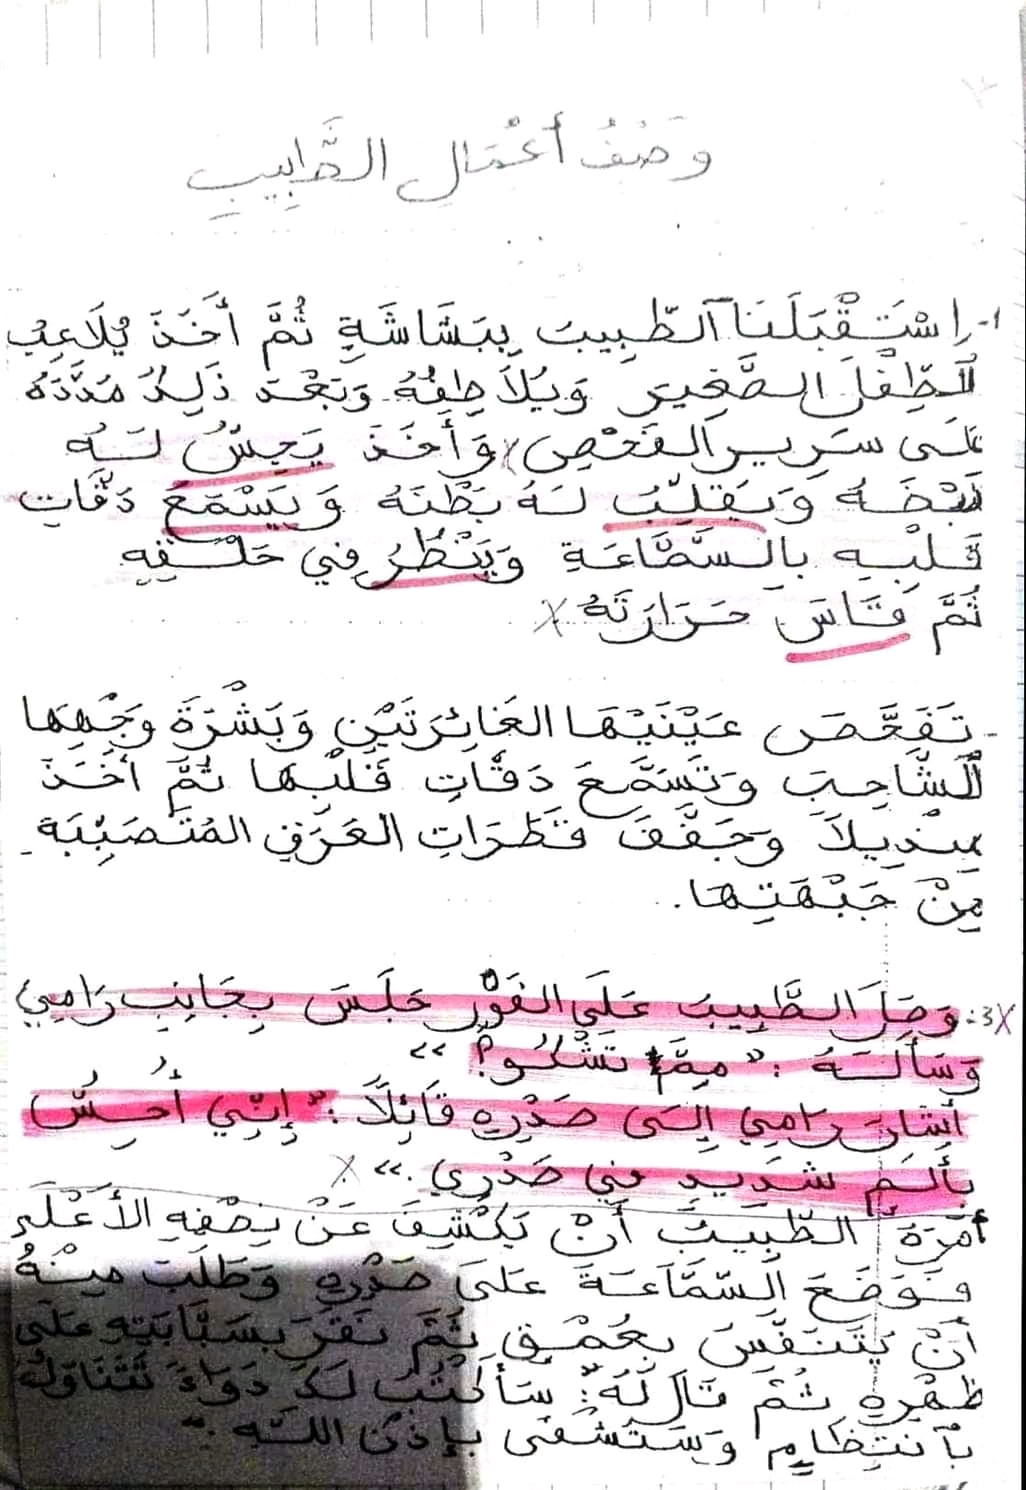 وَصْفُ أَعْمَالِ الطَّبِيبِ
1- اِسْتَقْبَلَنَا آلطّبِيبَ بِبَشَاشَةٍ ثُمَّ أَخَذَ يُلَاعِبُ
آلطِّفْلَ الصَّغِيرَ وَيُلاَطِفُهُ وَبَعْدَ ذَلِكَ مَدَّدَهُ
عَلَى سَرِيرِ الفَحْصِ وَأَخَذَ يَجِسُّ لَهُ
نَبْضَهُ وَيَقلِّبُ لَهُ بَطْنَهُ وَيَسْمَعَ دَقَّاتِ
قَلْبِهِ بِالسَّمَّاعَةِ وَيَنْظُرُ فِي حَلْقِهِ
ثُمَّ قَاسَ حَرَارَتَهُ
- تَفَحَّصَ عَيْنَيْهَا الغَائِرَتَيْنِ وَبَشْرَةَ وَجْهِهَا
آلشَّاحِبَ وَتَسَمَّعَ دَقَّاتِ قَلْبِهَا ثُمَّ أَخَذَ
مِنْدِيلاً وَجَفَّفَ قَطَرَاتِ العَرَقِ المُتَصَبِّبَةِ
مِنْ جَبْهَتِهَا.
3- وَصَلَ الطَّبِيبَ عَلَى الفَوْرِ جَلَسَ بِجَانِبِ رَامِي
وَسَأَلَهُ : " مِمَّ تَشْكُو؟ "
أَشَارَ رَامِي إِلَى صَدْرِهِ قَائِلاً : " إِنِّي أُحِسُّ
بِأَلَمٍ شَدِيدٍ فِي صَدْرِي . "
أَمَرَهُ الطَّبِيبُ أَنْ يَكْشِفَ عَنْ نِصْفِهِ الأَعْلَى
فَوَضَعَ السَّمَّاعَةَ عَلَى صَدْرِهِ وَطَلَبَ مِنْهُ
أَنْ يَتَنَفَّسَ بِعُمْقٍ ثُمَّ نَقَرَ بِسَبَّابَتِهِ عَلَى
ظَهْرِهِ ثُمَّ قَالَ لَهُ: " سَأَكْتُبُ لَكَ دَوَاءً تَتَنَاوَلُهُ
بِآنْتِظَامٍ وَسَتُشْفَى بِإِذْنِ اللَّهِ . "